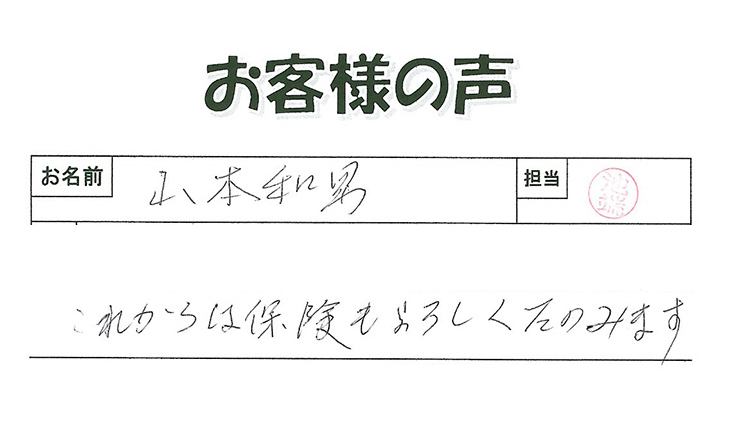 お客様の声
お名前 山本和男 担当 池端
これからは保険もよろしくたのみます